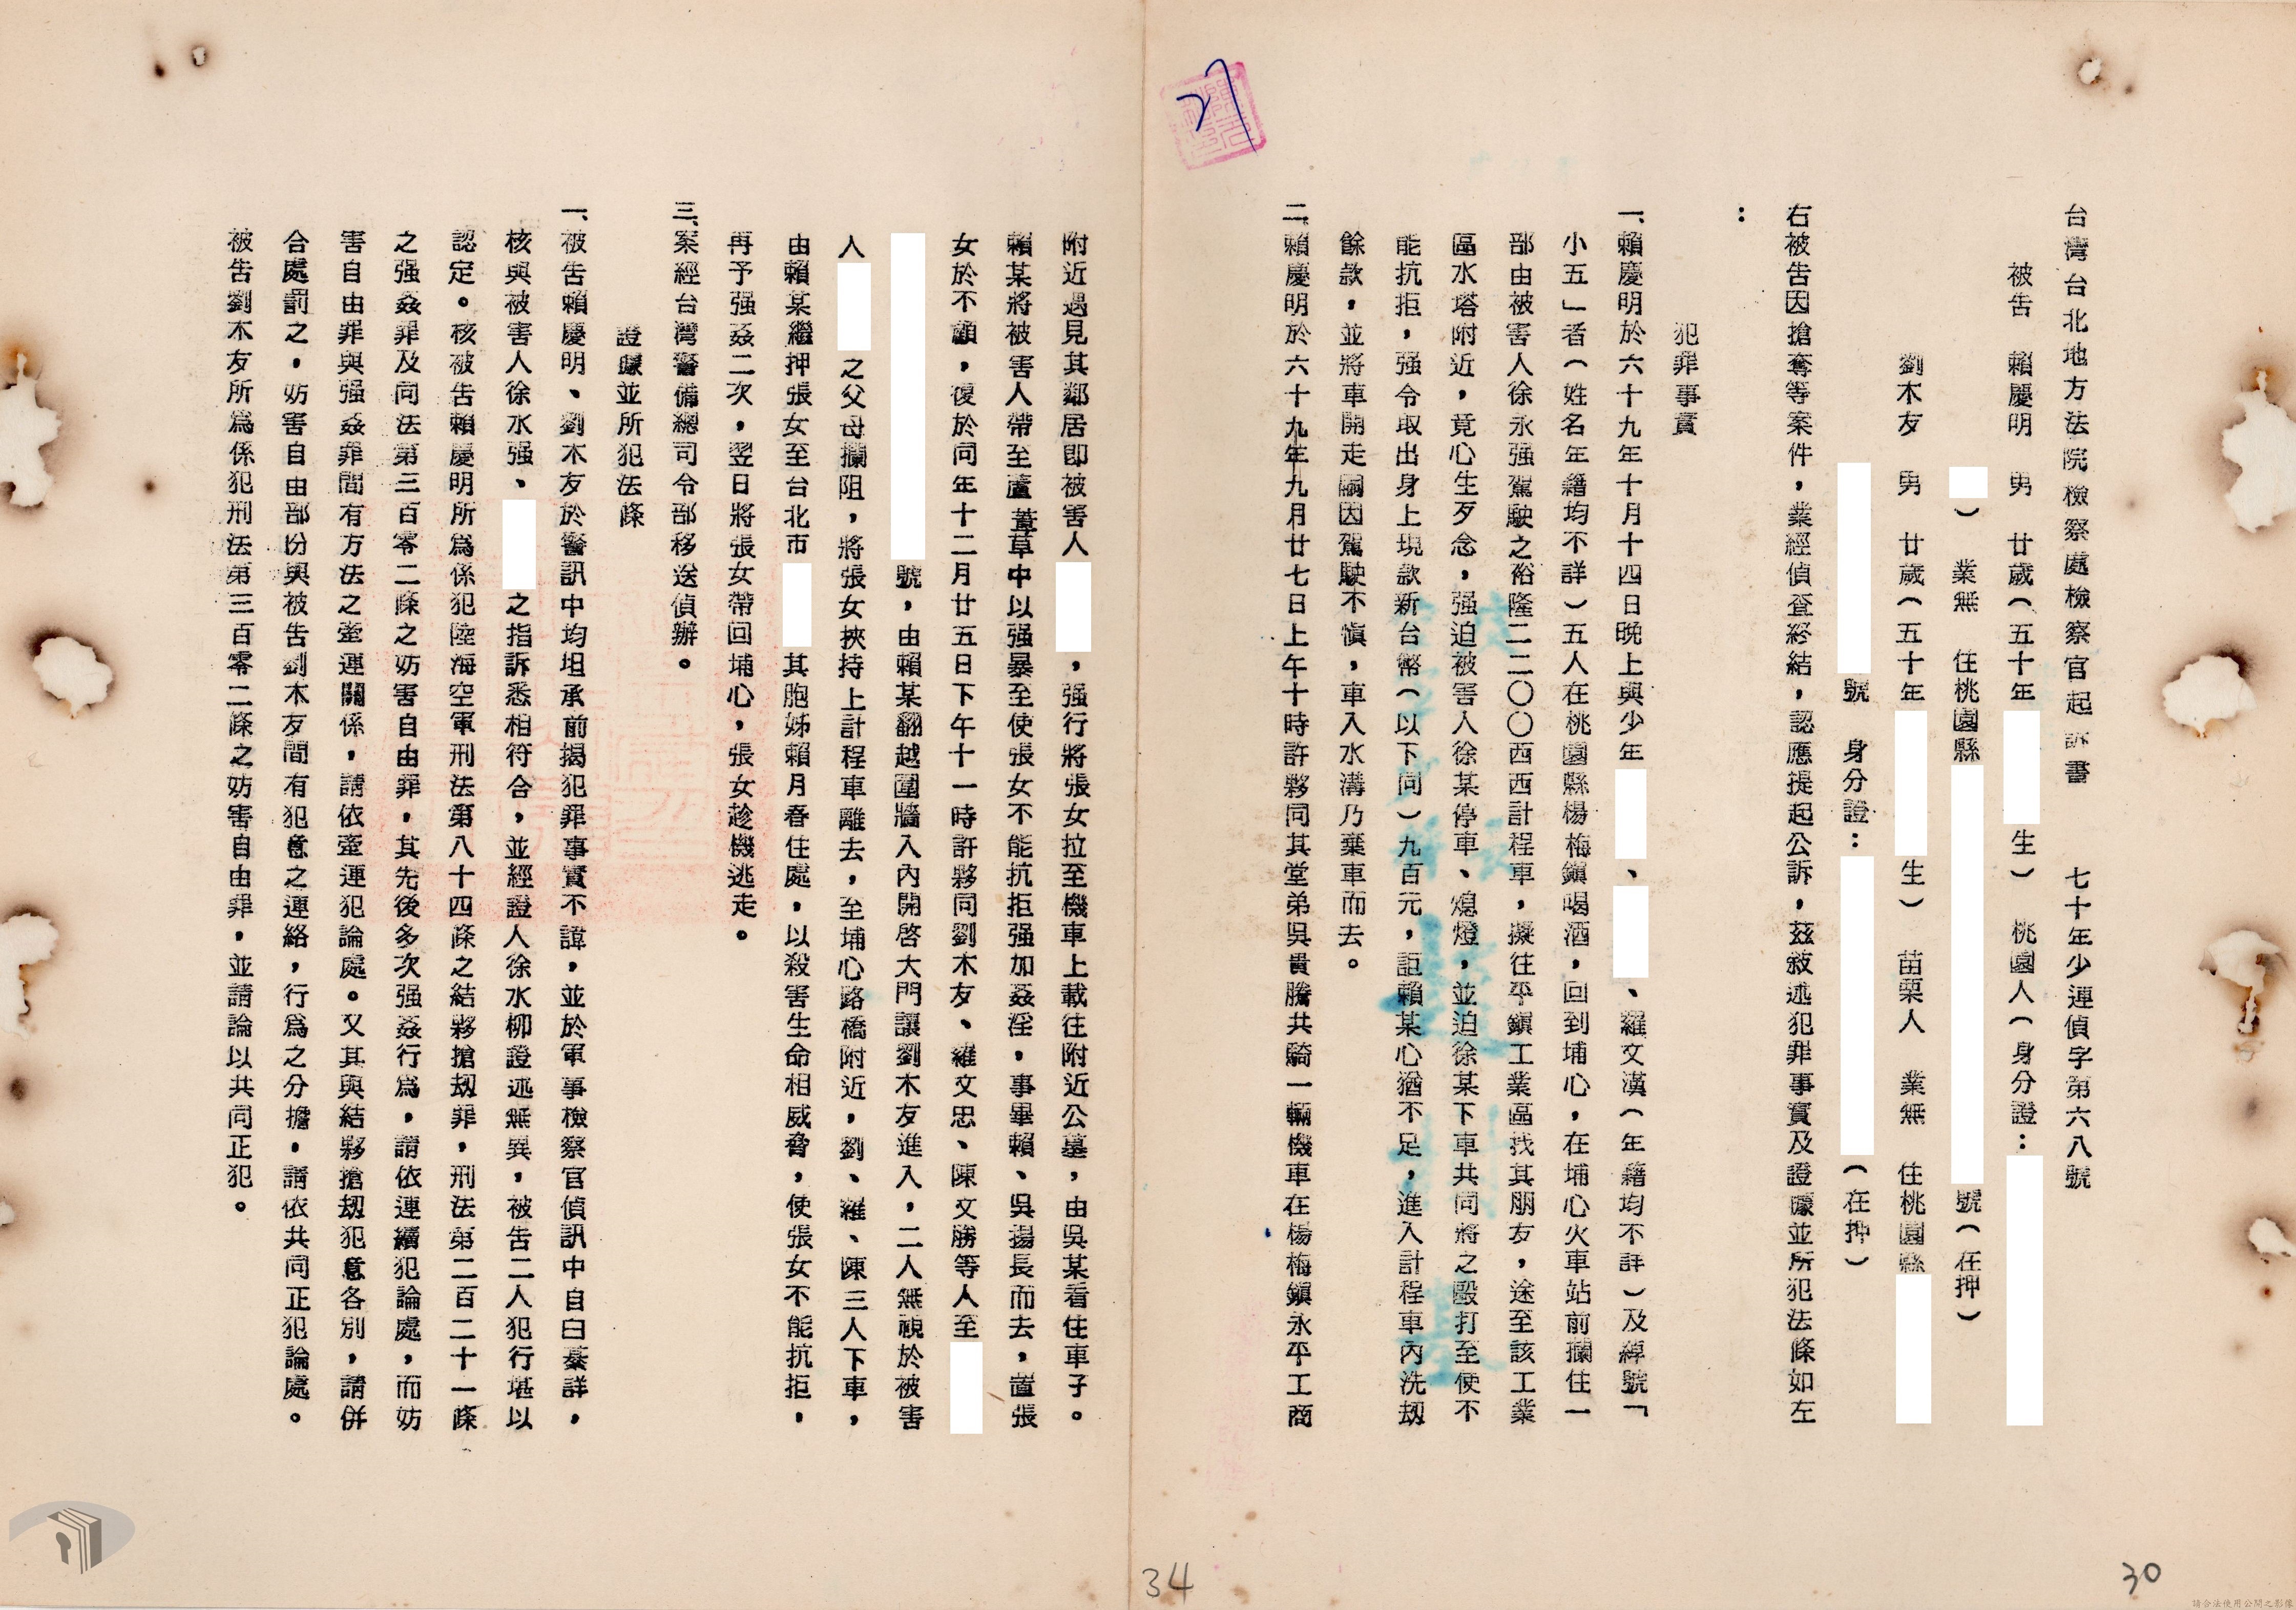 台灣台北地方法院檢察處檢察官起訴書　七十年少連偵字第六八號
被告　賴慶明　男　廿歲（五十年　生）　桃園人（身分證：
）　業無　住桃園縣　號（在押）
劉木友　男　廿歲（五十年　生）　苗栗人　業無　住桃園縣
號　身分證：　（在押）
右被告因搶奪等案件，業經偵查終結，認應提起公訴，茲敍述犯罪事實及證據並所犯法條如左
：
犯罪事實
一、賴慶明於六十九年十月十四日晚上與少年　、　、羅文漢（年籍均不詳）及綽號「
小五」者（姓名年籍均不詳）五人在桃園縣楊梅鎮喝酒，回到埔心，在埔心火車站前攔住一
部由被害人徐永强駕駛之裕隆二二〇〇西西計程車，擬往平鎮工業區找其朋友，途至該工業
區水塔附近，竟心生歹念，强迫被害人徐某停車、熄燈，並迫徐某下車共同將之毆打至使不
能抗拒，强令取出身上現款新台幣（以下同）九百元，詎賴某心猶不足，進入計程車內洗刼
餘款，並將車開走嗣因駕駛不愼，車入水溝乃棄車而去。
二、賴慶明於六十九年九月廿七日上午十時許夥同其堂弟吳貴騰共騎一輛機車在楊梅鎮永平工商
附近遇見其鄰居即被害人　，强行將張女拉至機車上載往附近公墓，由吳某看住車子。
賴某將被害人帶至蘆葦草中以强暴至使張女不能抗拒强加姦淫，事畢賴、吳揚長而去，置張
女於不顧，復於同年十二月廿五日下午十一時許夥同劉木友、羅文忠、陳文勝等人至
號，由賴某翻越圍牆入內開啓大門讓劉木友進入，二人無視於被害
人　之父母攔阻，將張女挾持上計程車離去，至埔心路橋附近，劉、羅、陳三人下車，
由賴某繼押張女至台北市　其胞姊賴月春住處，以殺害生命相威脅，使張女不能抗拒，
再予强姦二次，翌日將張女帶回埔心，張女趁機逃走。
三、案經台灣警備總司令部移送偵辦。
證據並所犯法條
一、被告賴慶明、劉木友於警訊中均坦承前揭犯罪事實不諱，並於軍事檢察官偵訊中自白綦詳，
核與被害人徐水强、　之指訴悉相符合，並經證人徐水柳證述無異，被告二人犯行堪以
認定。核被告賴慶明所爲係犯陸海空軍刑法第八十四條之結夥搶刼罪，刑法第二百二十一條
之强姦罪及同法第三百零二條之妨害自由罪，其先後多次强姦行爲，請依連續犯論處，而妨
害自由罪與强姦罪間有方法之牽連關係，請依牽連犯論處。又其與結夥搶刼犯意各別，請併
合處罰之，妨害自由部份與被告劉木友間有犯意之連絡，行爲之分擔，請依共同正犯論處。
被告劉木友所爲係犯刑法第三百零二條之妨害自由罪，並請論以共同正犯。
27
34
30
請合法使用公開之影像